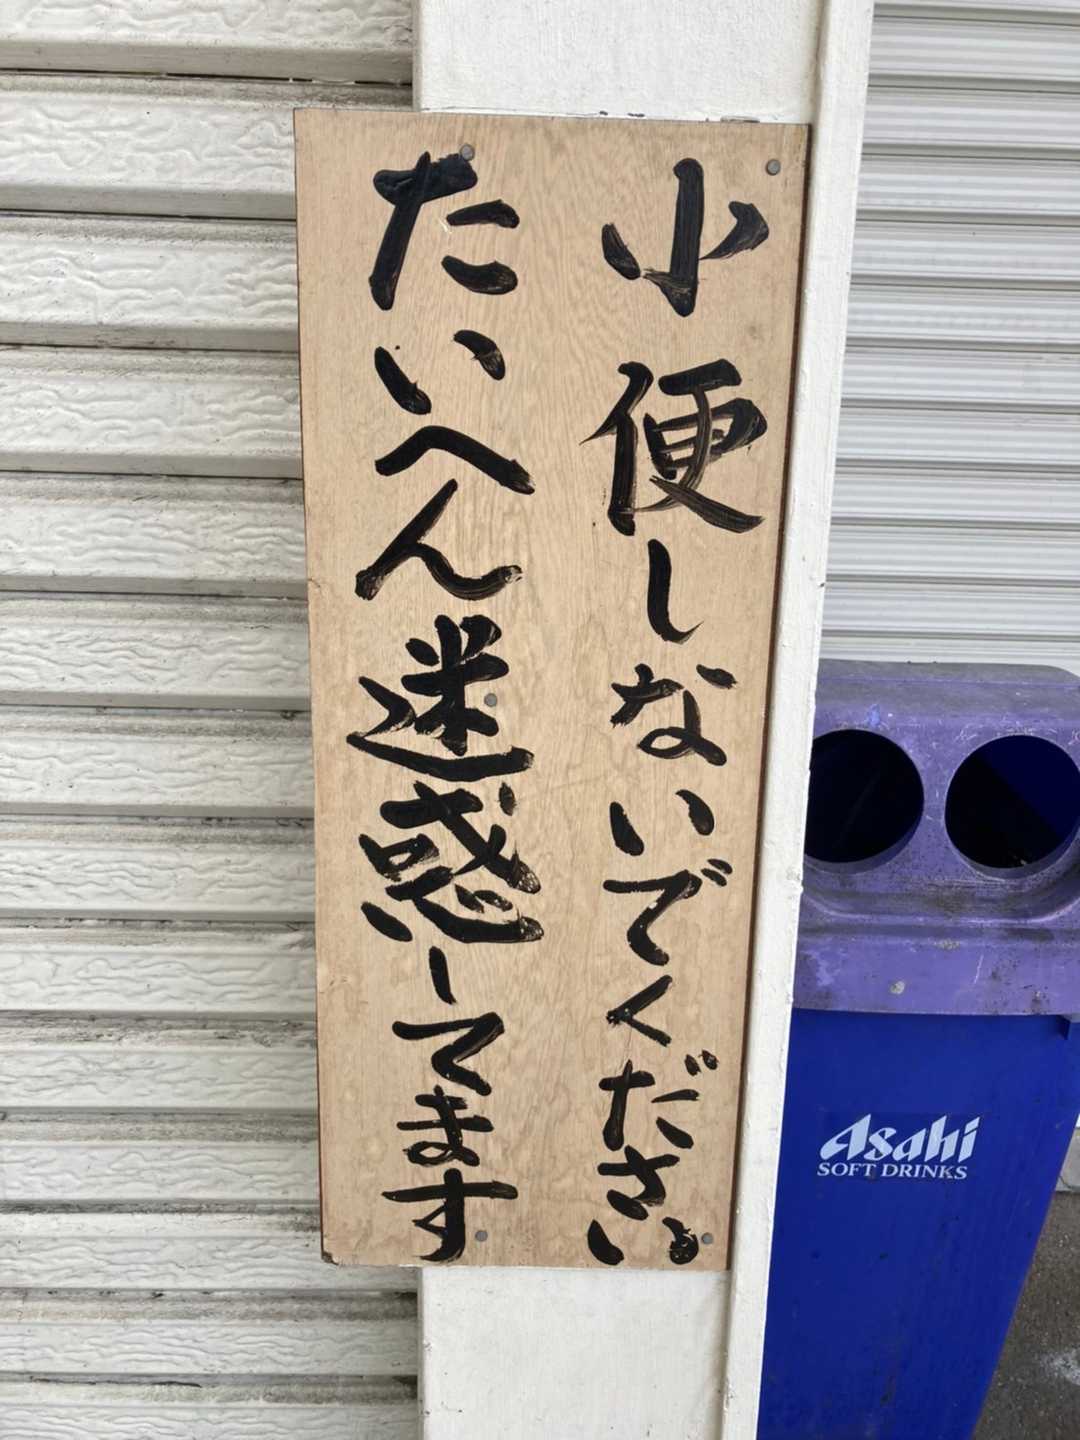 小便しないでください
たいへん迷惑してます
Asahi
SOFT DRINKS